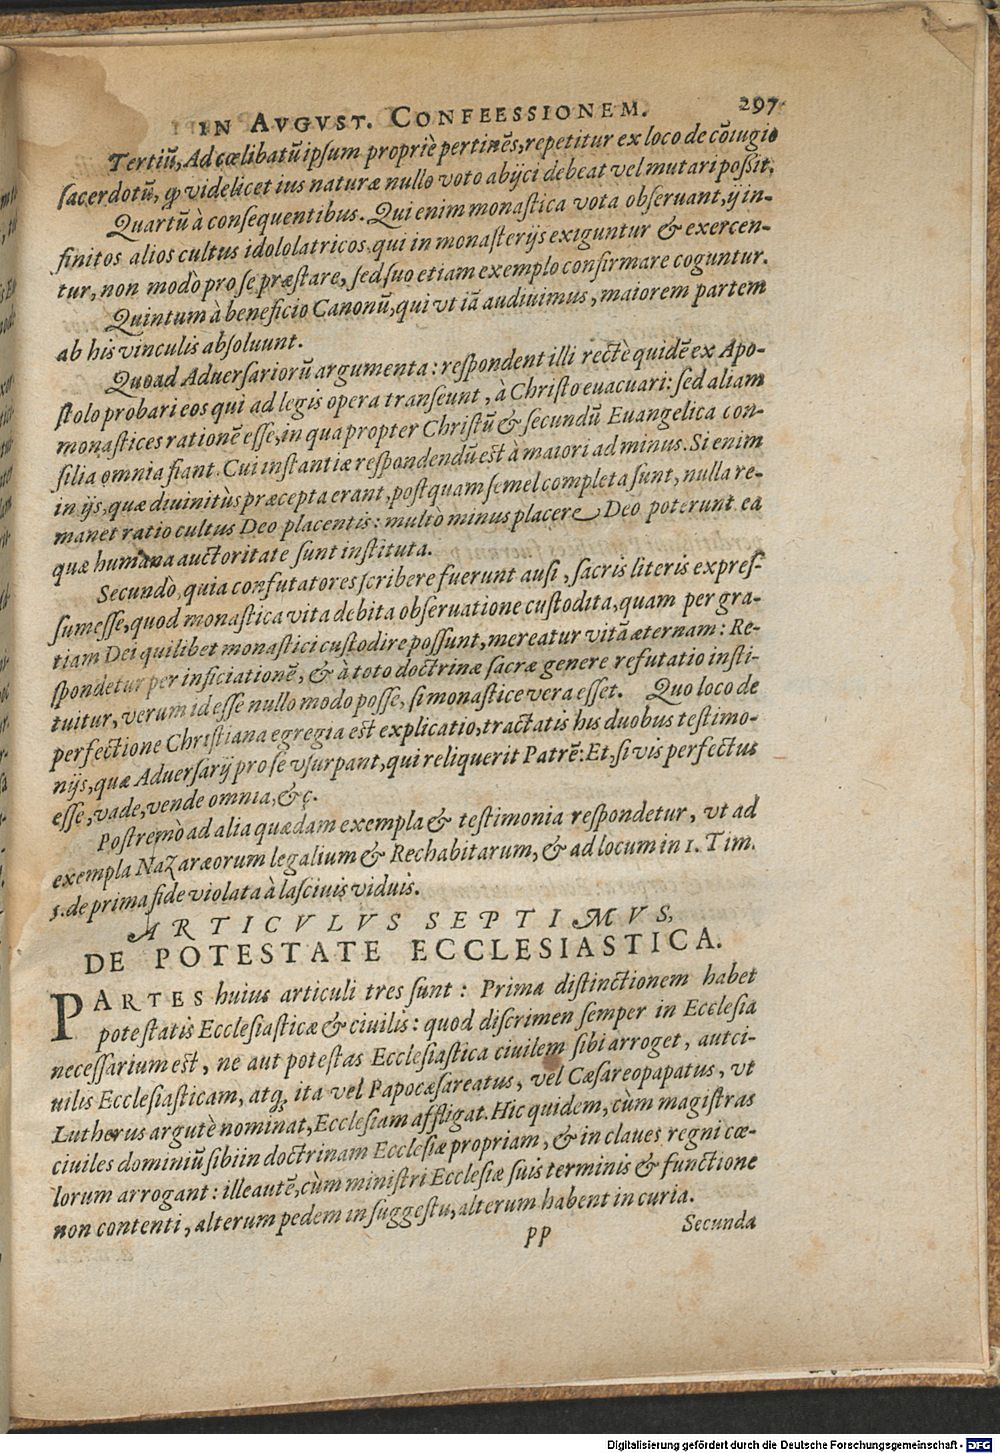 IN AVGVST. CONFEESSIONEM. 297
Tertiū, Ad cœlibatū ipsum propriè pertinēs, repetitur ex loco de cōiugio
sacerdotū, ꝙ videlicet ius naturæ nullo voto abijci debeat vel mutari possit.
Quartū à consequentibus. Qui enim monastica vota obseruant, ij in-
finitos alios cultus idololatricos, qui in monasterijs exiguntur & exercen-
tur, non modò pro se præstare, sed suo etiam exemplo confirmare coguntur.
Quintum à beneficio Canonū, qui vt iā audiuimus, maiorem partem
ab his vinculis absoluunt.
Quoad Aduersariorū argumenta: respondent illi rectè quidē ex Apo-
stolo probari eos qui ad legis opera transeunt, à Christo euacuari: sed aliam
monastices rationē esse, in qua propter Christū & secundū Euangelica con-
silia omnia fiant. Cui instantiæ respondendū est à maiori ad minus. Si enim
in ijs, quæ diuinitùs præcepta erant, postquam semel completa sunt, nulla re-
manet ratio cultus Deo placentis: multò minus placere Deo poterunt ea
quæ humana auctoritate sunt instituta.
Secundò, quia confutatores scribere fuerunt ausi, sacris literis expres-
sum esse, quod monastica vita debita obseruatione custodita, quam per gra-
tiam Dei quilibet monastici custodire possunt, mereatur vitā æternam: Re-
spondetur per inficiationē, & à toto doctrinæ sacræ genere refutatio insti-
tuitur, verum id esse nullo modo posse, si monastice vera esset. Quo loco de
perfectione Christiana egregia est explicatio, tractatis his duobus testimo-
nijs, quæ Aduersarij pro se vsurpant, qui reliquerit Patrē: Et, si vis perfectus
esse, vade, vende omnia, &c.
Postremò ad alia quædam exempla & testimonia respondetur, vt ad
exempla Nazaræorum legalium & Rechabitarum, & ad locum in 1. Tim.
5. de prima fide violata à lasciuis viduis.
ARTICVLVS SEPTIMVS,
DE POTESTATE ECCLESIASTICA.
PARTES huius articuli tres sunt: Prima distinctionem habet
potestatis Ecclesiasticæ & ciuilis: quod discrimen semper in Ecclesia
necessarium est, ne aut potestas Ecclesiastica ciuilem sibi arroget, aut ci-
uilis Ecclesiasticam, atq; ita vel Papocæsareatus, vel Cæsareopapatus, vt
Lutherus argutè nominat, Ecclesiam affligat. Hic quidem, cùm magistras
ciuiles dominiū sibi in doctrinam Ecclesiæ propriam, & in claues regni cœ-
lorum arrogant: ille autē, cùm ministri Ecclesiæ suis terminis & functione
non contenti, alterum pedem in suggestu, alterum habent in curia.
pp Secunda
Digitalisierung gefördert durch die Deutsche Forschungsgemeinschaft - DFG